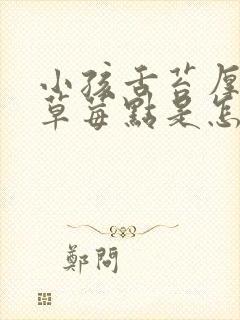 小孩舌苔厚
草莓點是怎
鄭問